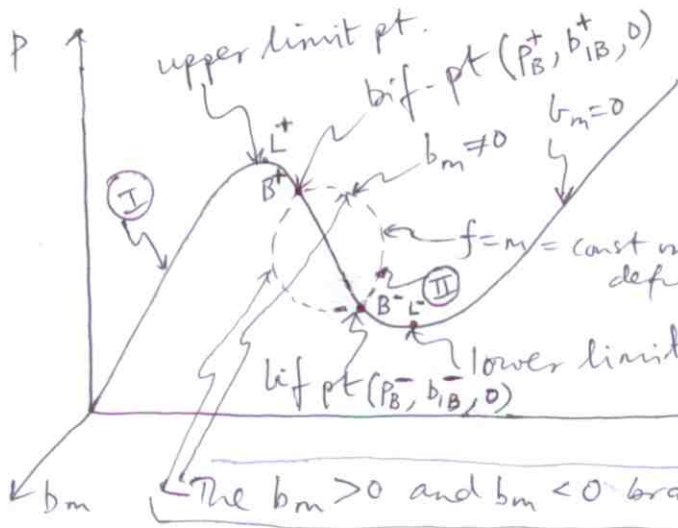 P
upper limit pt.
bif-pt (P_B^+, b_{1B}^+, 0)
L^+
B^+
b_m ≠ 0
b_m = 0
I
f = m = const
II
B^- L^-
lower limit
bif pt (P_B^-, b_{1B}^-, 0)
b_m
The b_m > 0 and b_m < 0